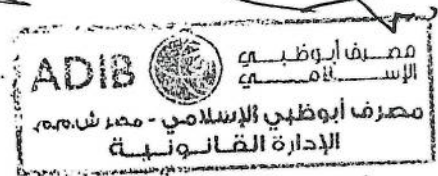 ADIB
مصرف أبوظبي
الإســـلامي
مصرف أبوظبي الإسلامي - مصر ش.م.م.
الإدارة القـانـونيـة